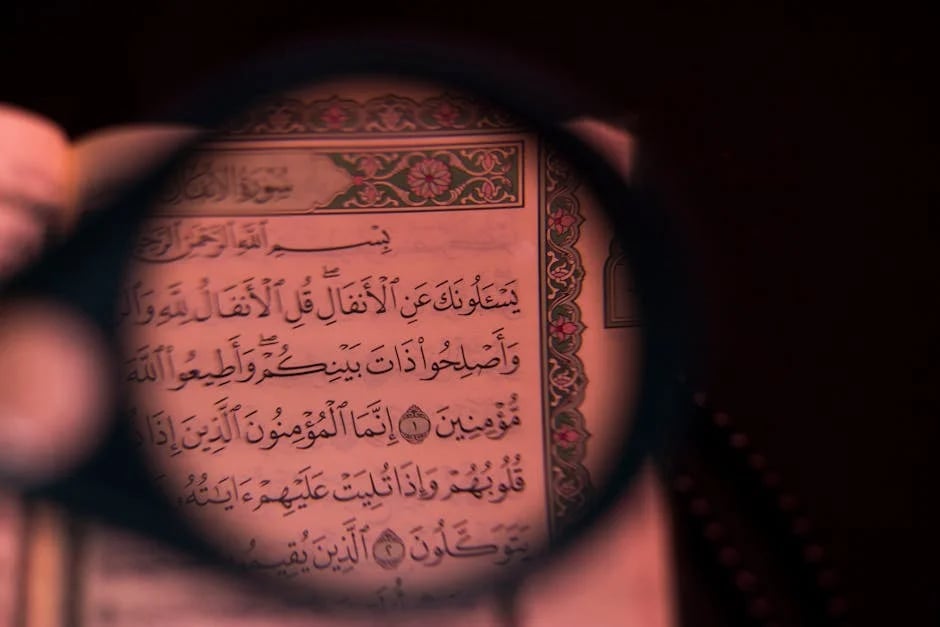 سُورَةُ الْأَنفَالِ
بِسْمِ ٱللَّهِ ٱلرَّحْمَٰنِ
يَسْـَٔلُونَكَ عَنِ ٱلْأَنفَالِۖ قُلِ ٱلْأَنفَالُ لِلَّهِ
وَأَصْلِحُوا۟ ذَاتَ بَيْنِكُمْۖ وَأَطِيعُوا۟ ٱللَّهَ
مُّؤْمِنِينَ ١ إِنَّمَا ٱلْمُؤْمِنُونَ ٱلَّذِينَ إِذَا
قُلُوبُهُمْ وَإِذَا تُلِيَتْ عَلَيْهِمْ ءَايَٰتُهُۥ
يَتَوَكَّلُونَ ٢ ٱلَّذِينَ